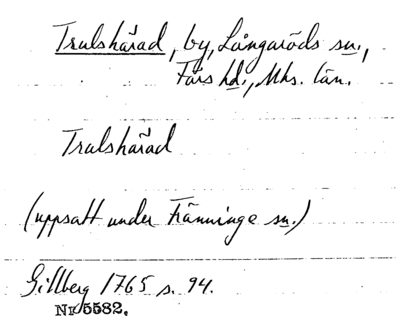 Trulshärad, by, Långaröds sn.,
Färs hd., Mhs. län.
Trulshärad
(uppsatt under Fränninge sn.)
Gillberg 1765 s. 94.
Nr 5582.